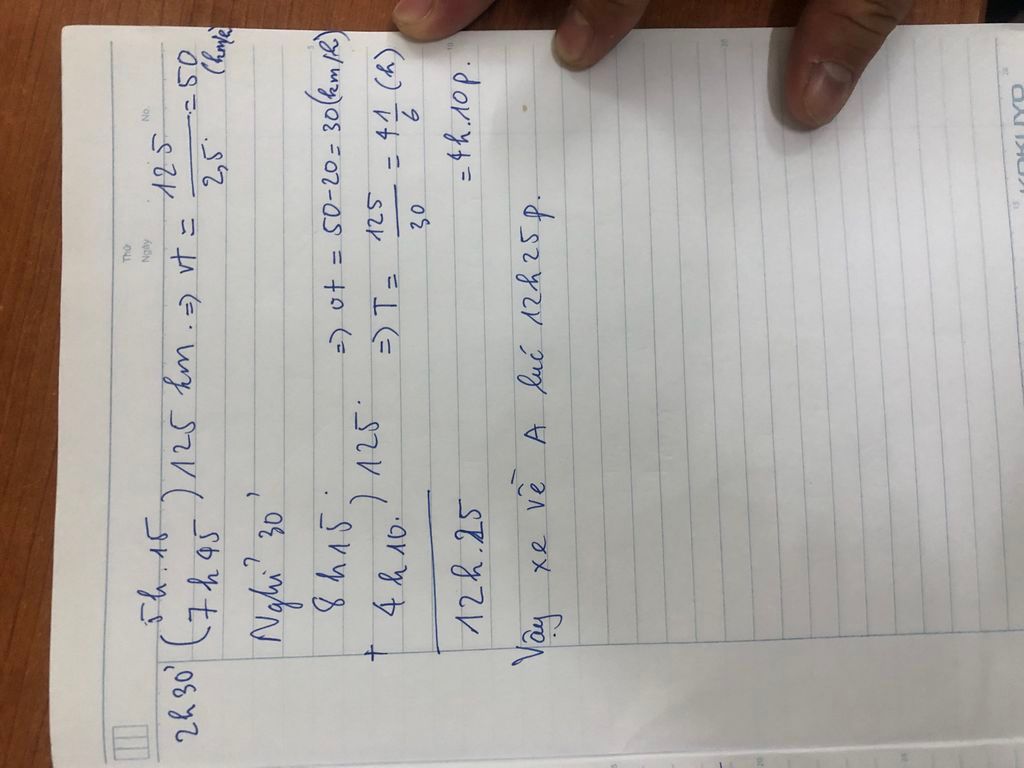 Thứ
Ngày No.
5h.15
2h30' (7h45 ) 125 km. => vt = 125/2,5. = 50 (km/h)
Nghỉ 30'
8h15. => vt = 50-20 = 30 (km/h)
+ 4h10. ) 125. => T = 125/30 = 4 1/6 (h)
12h.25 = 4h.10p.
Vậy xe về A lúc 12h25p.
KOKUYO